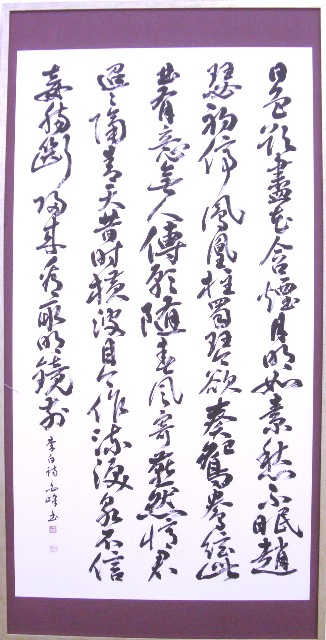 日色欲盡花含煙月明如素愁不眠趙
瑟初停鳳凰柱蜀琴欲奏鴛鴦絃此
曲有意無人傳願隨春風寄燕然憶君
迢々隔青天昔時横波目今作流淚泉不信
妾腸斷歸來看取明鏡前
李白詩 峰書